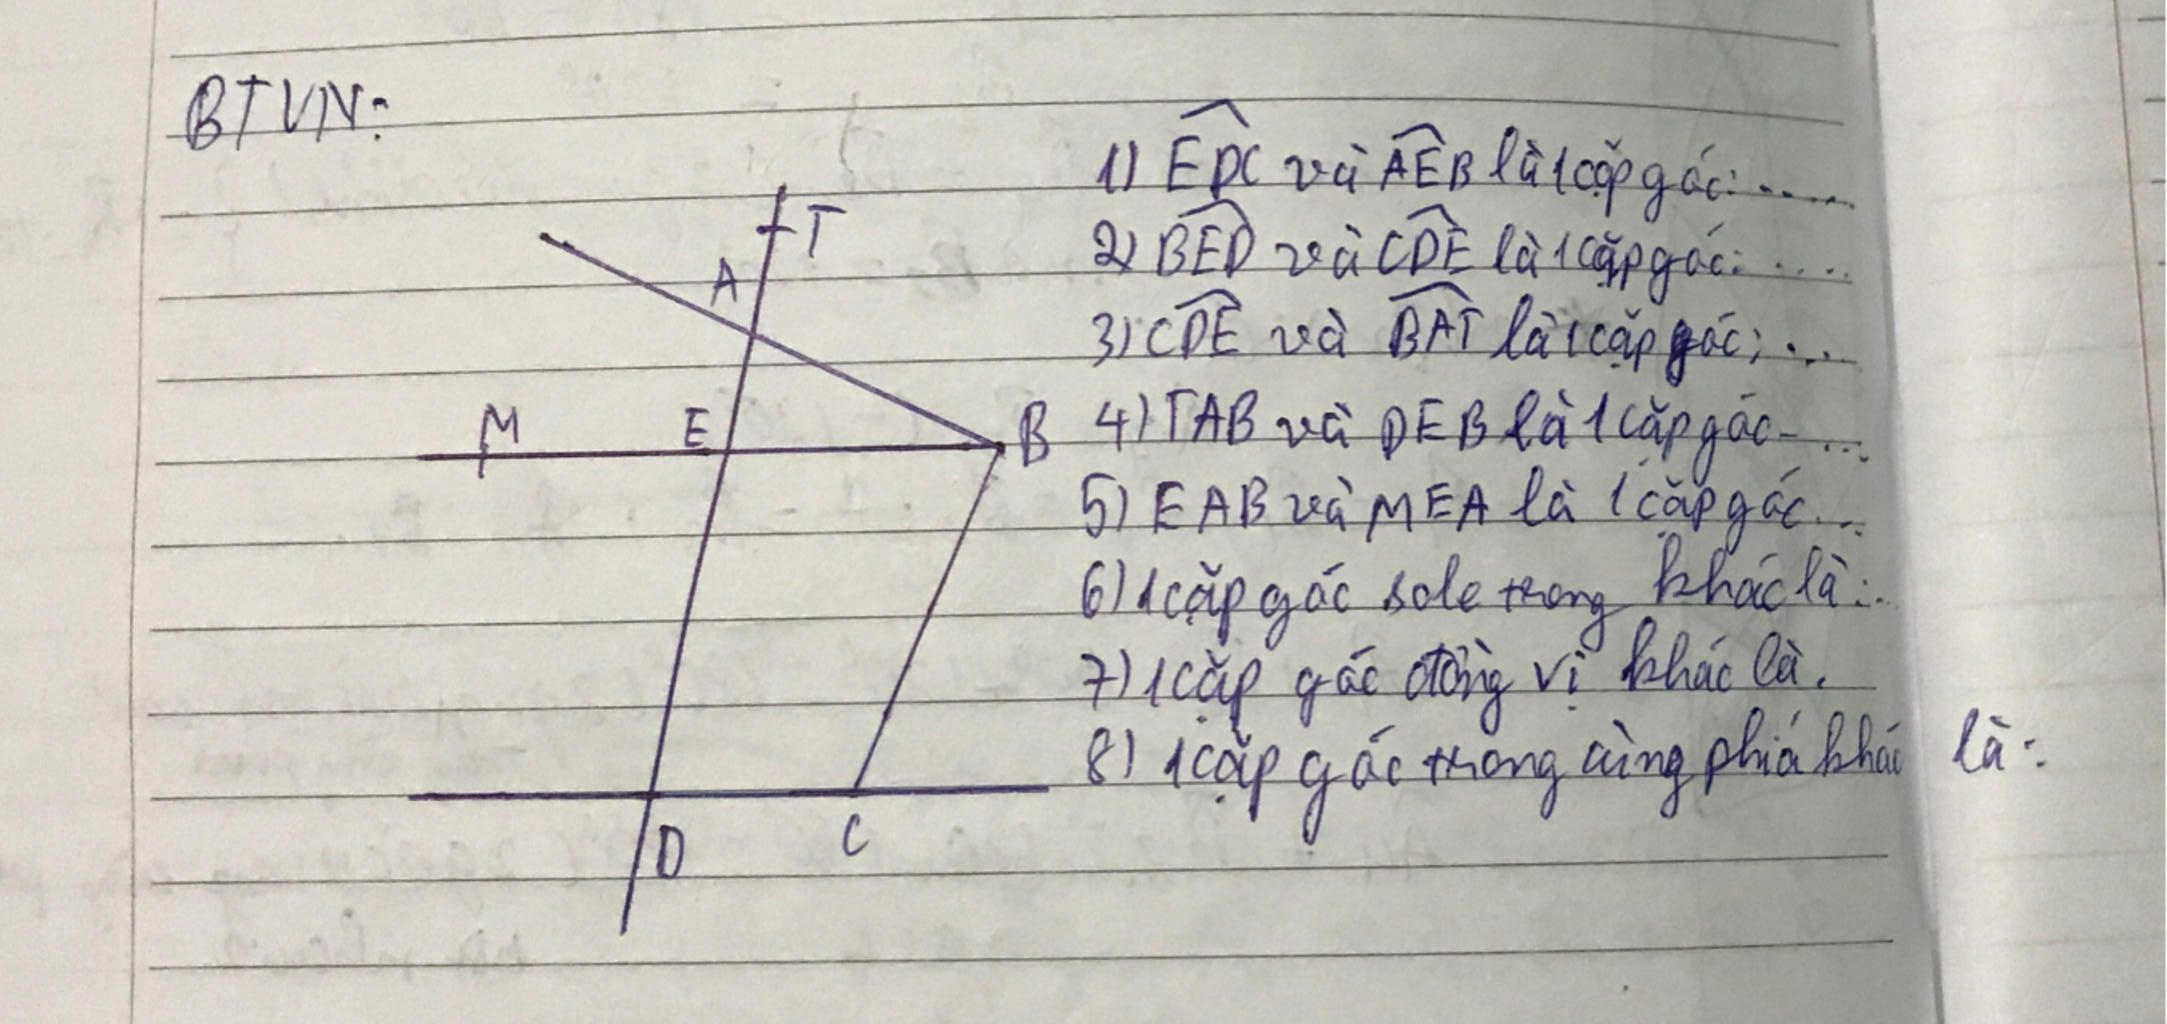 BTVN:
T
A
M
E
B
D
C
1) EDC và AEB là 1 cặp góc: .....
2) BED và CDE là 1 cặp góc: ....
3) CDE và BAT là 1 cặp góc: ...
4) TAB và DEB là 1 cặp góc ...
5) EAB và MEA là 1 cặp góc ...
6) 1 cặp góc sole trong khác là: ..
7) 1 cặp góc đồng vị khác là.
8) 1 cặp góc trong cùng phía khác là: